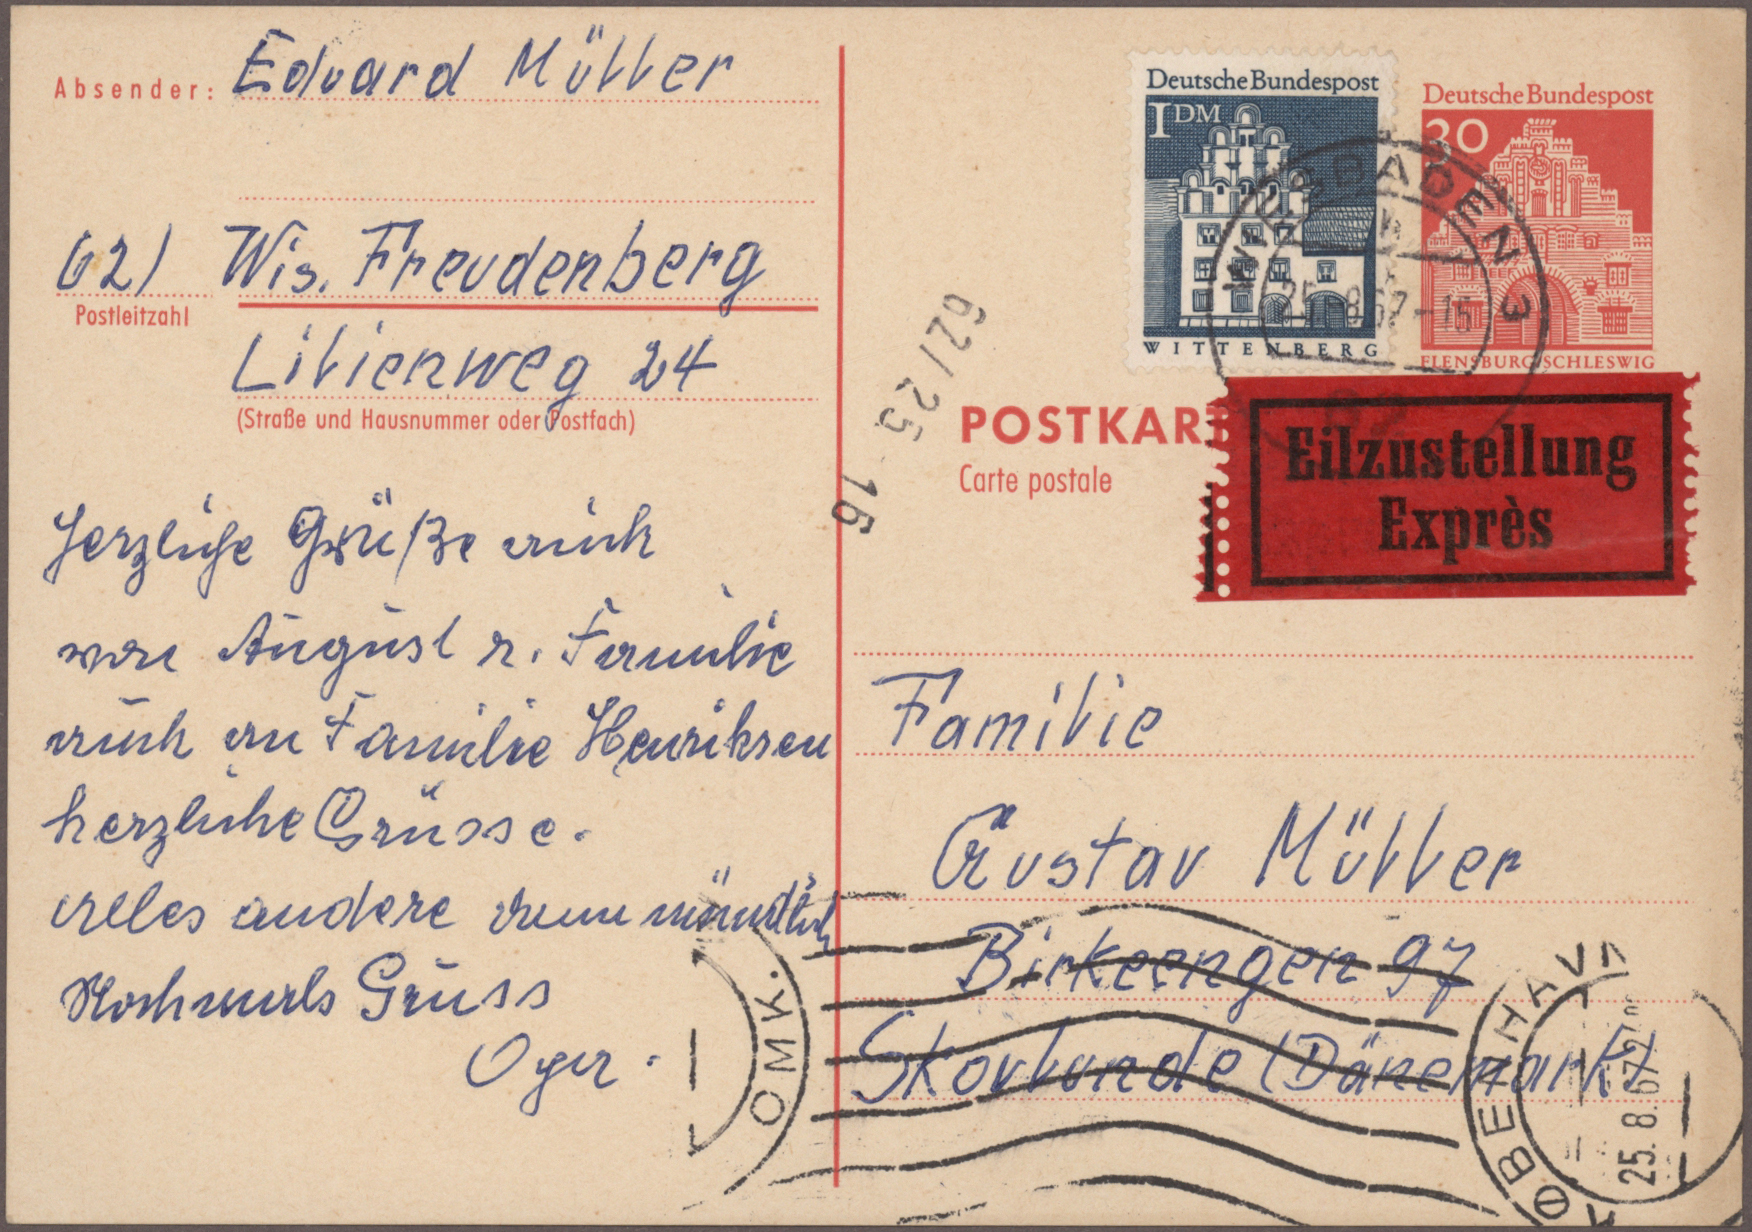 Absender: Eduard Müller
62) Wis. Freudenberg
Postleitzahl
Lilienweg 24
(Straße und Hausnummer oder Postfach)
Herzliche Grüße auch
von August u. Familie
auch an Familie Henriksen
herzliche Grüsse.
alles andere dann mündlich
Nochmals Gruss
Deutsche Bundespost
1 DM
WITTENBERG
Deutsche Bundespost
30
FLENSBURG/SCHLESWIG
WIESBADEN 3
25.-8.67-15
62
62/25 16
POSTKART
Carte postale
Eilzustellung
Exprès
Familie
Gustav Müller
Birkeengen 97
Skovlunde (Dänemark)
OMK.
KØBENHAVN
25.8.67